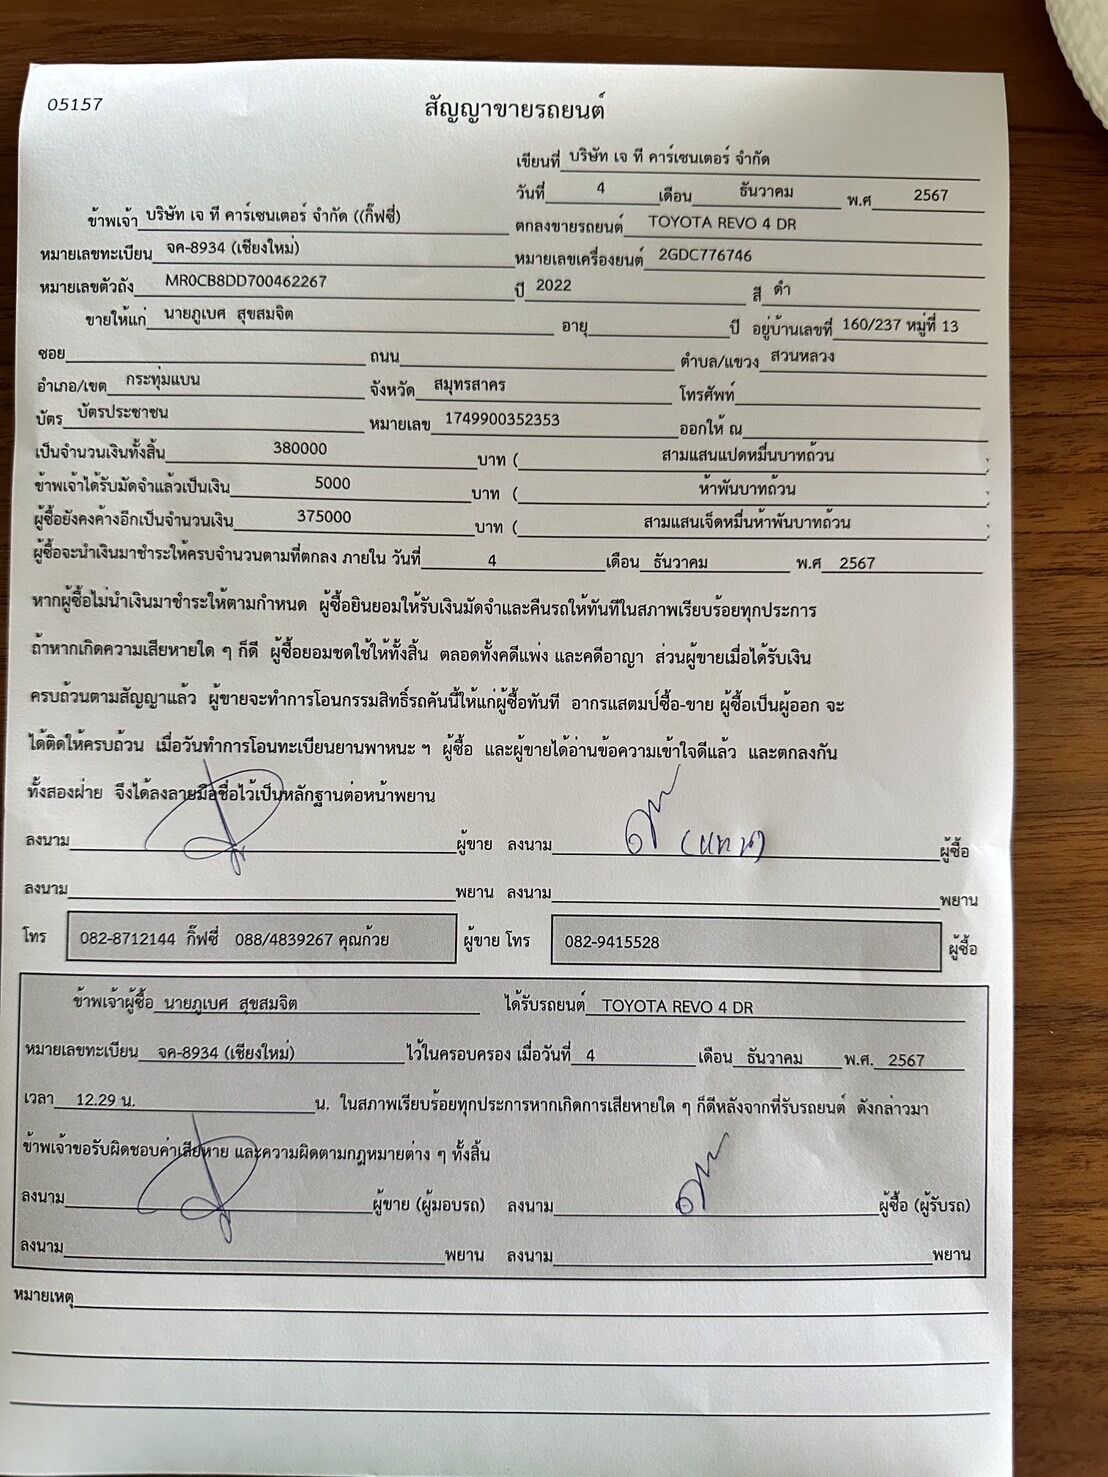 05157
สัญญาขายรถยนต์
เขียนที่ บริษัท เจ ที คาร์เซนเตอร์ จำกัด
วันที่ 4 เดือน ธันวาคม พ.ศ 2567
ข้าพเจ้า บริษัท เจ ที คาร์เซนเตอร์ จำกัด ((กิ๊ฟซี่) ตกลงขายรถยนต์ TOYOTA REVO 4 DR
หมายเลขทะเบียน จค-8934 (เชียงใหม่) หมายเลขเครื่องยนต์ 2GDC776746
หมายเลขตัวถัง MR0CB8DD700462267 ปี 2022 สี ดำ
ขายให้แก่ นายภูเบศ สุขสมจิต อายุ ปี อยู่บ้านเลขที่ 160/237 หมู่ที่ 13
ซอย ถนน ตำบล/แขวง สวนหลวง
อำเภอ/เขต กระทุ่มแบน จังหวัด สมุทรสาคร โทรศัพท์
บัตร บัตรประชาชน หมายเลข 1749900352353 ออกให้ ณ
เป็นจำนวนเงินทั้งสิ้น 380000 บาท ( สามแสนแปดหมื่นบาทถ้วน )
ข้าพเจ้าได้รับมัดจำแล้วเป็นเงิน 5000 บาท ( ห้าพันบาทถ้วน )
ผู้ซื้อยังคงค้างอีกเป็นจำนวนเงิน 375000 บาท ( สามแสนเจ็ดหมื่นห้าพันบาทถ้วน )
ผู้ซื้อจะนำเงินมาชำระให้ครบจำนวนตามที่ตกลง ภายใน วันที่ 4 เดือน ธันวาคม พ.ศ 2567
หากผู้ซื้อไม่นำเงินมาชำระให้ตามกำหนด ผู้ซื้อยินยอมให้รับเงินมัดจำและคืนรถให้ทันทีในสภาพเรียบร้อยทุกประการ
ถ้าหากเกิดความเสียหายใด ๆ ก็ดี ผู้ซื้อยอมชดใช้ให้ทั้งสิ้น ตลอดทั้งคดีแพ่ง และคดีอาญา ส่วนผู้ขายเมื่อได้รับเงิน
ครบถ้วนตามสัญญาแล้ว ผู้ขายจะทำการโอนกรรมสิทธิ์รถคันนี้ให้แก่ผู้ซื้อทันที อากรแสตมป์ซื้อ-ขาย ผู้ซื้อเป็นผู้ออก จะ
ได้ติดให้ครบถ้วน เมื่อวันทำการโอนทะเบียนยานพาหนะ ฯ ผู้ซื้อ และผู้ขายได้อ่านข้อความเข้าใจดีแล้ว และตกลงกัน
ทั้งสองฝ่าย จึงได้ลงลายมือชื่อไว้เป็นหลักฐานต่อหน้าพยาน
ลงนาม ผู้ขาย ลงนาม (แทน) ผู้ซื้อ
ลงนาม พยาน ลงนาม พยาน
โทร 082-8712144 กิ๊ฟซี่ 088/4839267 คุณก้วย ผู้ขาย โทร 082-9415528 ผู้ซื้อ
ข้าพเจ้าผู้ซื้อ นายภูเบศ สุขสมจิต ได้รับรถยนต์ TOYOTA REVO 4 DR
หมายเลขทะเบียน จค-8934 (เชียงใหม่) ไว้ในครอบครอง เมื่อวันที่ 4 เดือน ธันวาคม พ.ศ. 2567
เวลา 12.29 น. น. ในสภาพเรียบร้อยทุกประการหากเกิดการเสียหายใด ๆ ก็ดีหลังจากที่รับรถยนต์ ดังกล่าวมา
ข้าพเจ้าขอรับผิดชอบค่าเสียหาย และความผิดตามกฎหมายต่าง ๆ ทั้งสิ้น
ลงนาม ผู้ขาย (ผู้มอบรถ) ลงนาม ผู้ซื้อ (ผู้รับรถ)
ลงนาม พยาน ลงนาม พยาน
หมายเหตุ